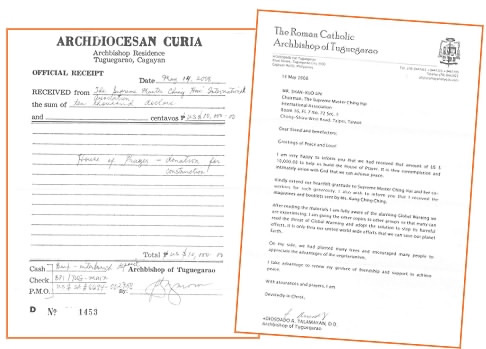 ARCHDIOCESAN CURIA
Archbishop Residence
Tuguegarao, Cagayan
OFFICIAL RECEIPT
Date May 14, 2008
RECEIVED from The Supreme Master Ching Hai International
Association
the sum of ten thousand dollars
and centavos
House of Prayer - donation for
construction
Total
Cash
Archbishop of Tuguegarao
Check
P.M.O.
By:
D No 1453
The Roman Catholic
Archbishop of Tuguegarao
ARCHBISHOP OF TUGUEGARAO
15 May 2008
MR. SHAN-KUO LIN
Chairman, The Supreme Master Ching Hai
International Association
Taipei, Taiwan
Dear friend and benefactor:
Greetings of Peace and Love!
I am very happy to inform you that we had received that amount of US $
10,000.00 to help us build the House of Prayer. It is thru contemplation and
intimately union with God that we can achieve peace.
Kindly extend our heartfelt gratitude to Supreme Master Ching Hai and her co-
workers for such generosity. I also wish to inform you that I received the
magazines and booklets sent by Ms. Kung Ching Ching.
After reading the materials I am fully aware of the alarming Global Warning we
are experiencing. I am giving the other copies to other groups so that many can
read the threat of Global Warning and adopt the solution to stop its harmful
effects. It is only thru our united world wide efforts that we can save our planet
Earth.
On my side, we had planted many trees and encouraged many people to
appreciate the advantages of the vegetarianism.
I take advantage to renew my gesture of friendship and support to achieve
peace.
With assurances and prayers, I am
Devotedly in Christ,
DIOSDADO A. TALAMAYAN, D.D.
Archbishop of Tuguegarao